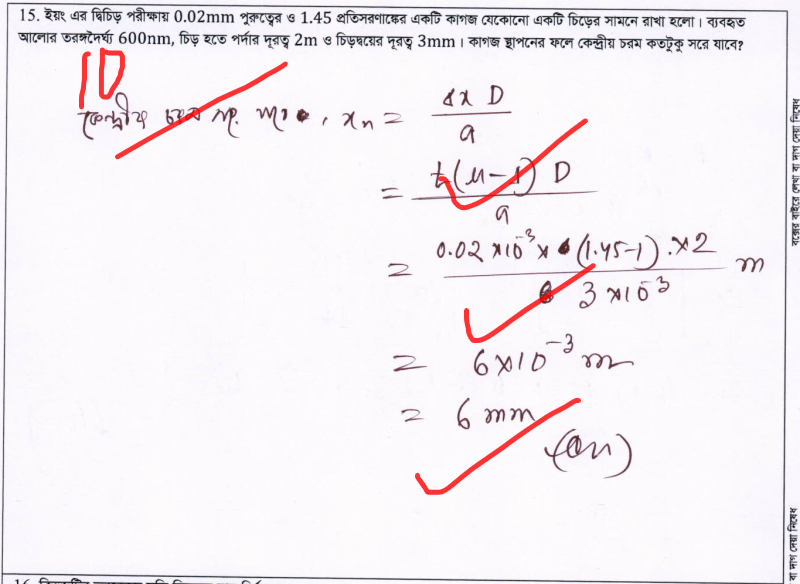 15. ইয়ং এর দ্বিচিড় পরীক্ষায় 0.02mm পুরুত্বের ও 1.45 প্রতিসরণাঙ্কের একটি কাগজ যেকোনো একটি চিড়ের সামনে রাখা হলো। ব্যবহৃত
আলোর তরঙ্গদৈর্ঘ্য 600nm, চিড় হতে পর্দার দূরত্ব 2m ও চিড়দ্বয়ের দূরত্ব 3mm। কাগজ স্থাপনের ফলে কেন্দ্রীয় চরম কতটুকু সরে যাবে?
10
কেন্দ্রীয় চরম , xₙ = Δx D / a
= t(μ-1) D / a
= 0.02×10⁻³ × (1.45-1) .×2 / 3×10⁻³ m
= 6×10⁻³ m
= 6 mm
(Ans)
বক্সের বাইরে লেখা বা দাগ দেয়া নিষেধ
বা দাগ দেয়া নিষেধ